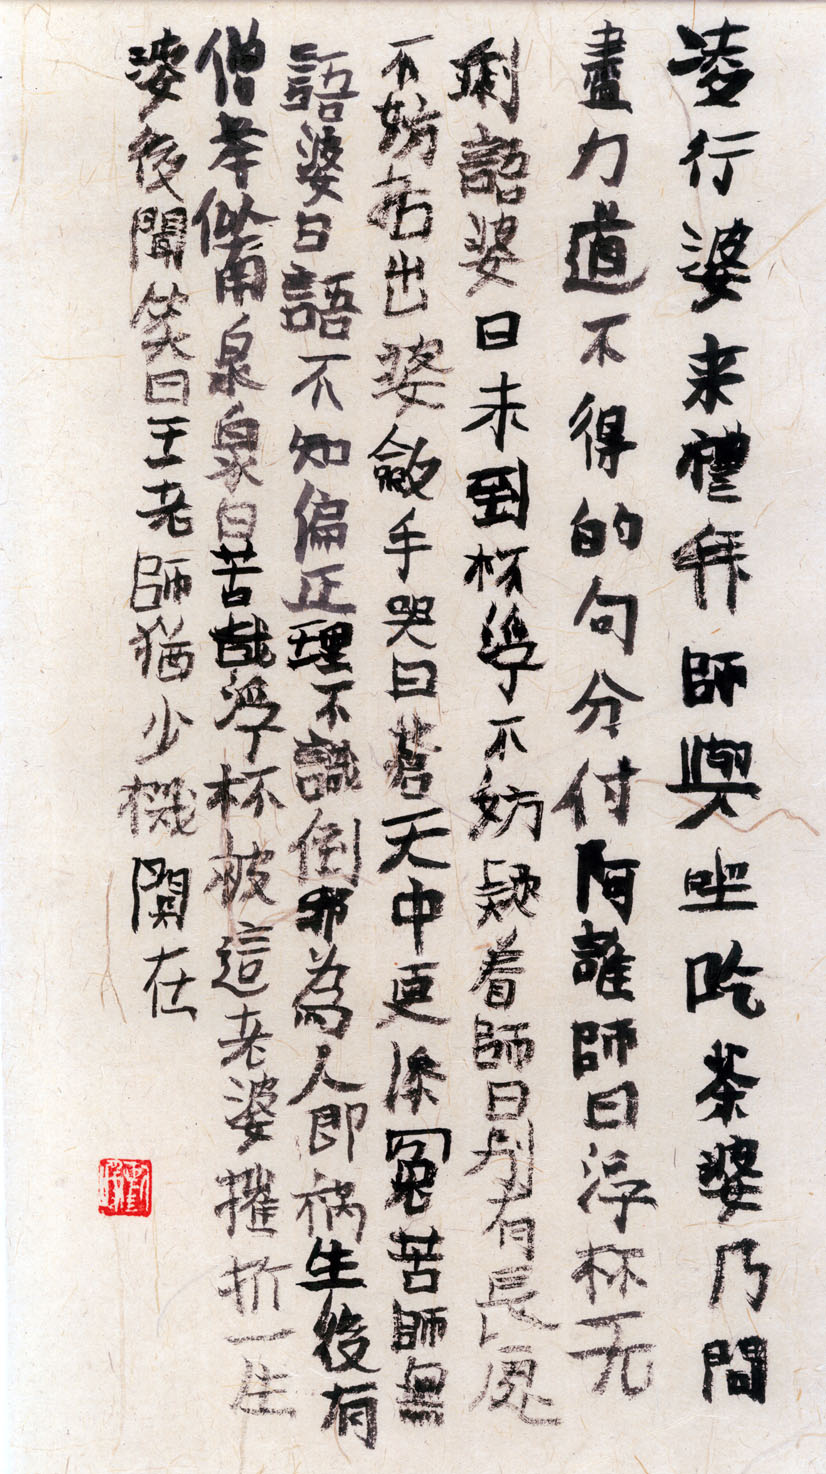 凌行婆来禮拜師與坐吃茶婆乃問
盡力道不得的句分付阿誰師曰浮杯无
剩語婆曰未到杯浮不妨疑着師曰別有長處
不妨拈出婆斂手哭曰蒼天中更添冤苦師無
語婆曰語不知偏正理不識倒邪為人即禍生後有
僧举似南泉泉曰苦哉浮杯被這老婆摧折一生
婆後聞笑曰王老師猶少機關在